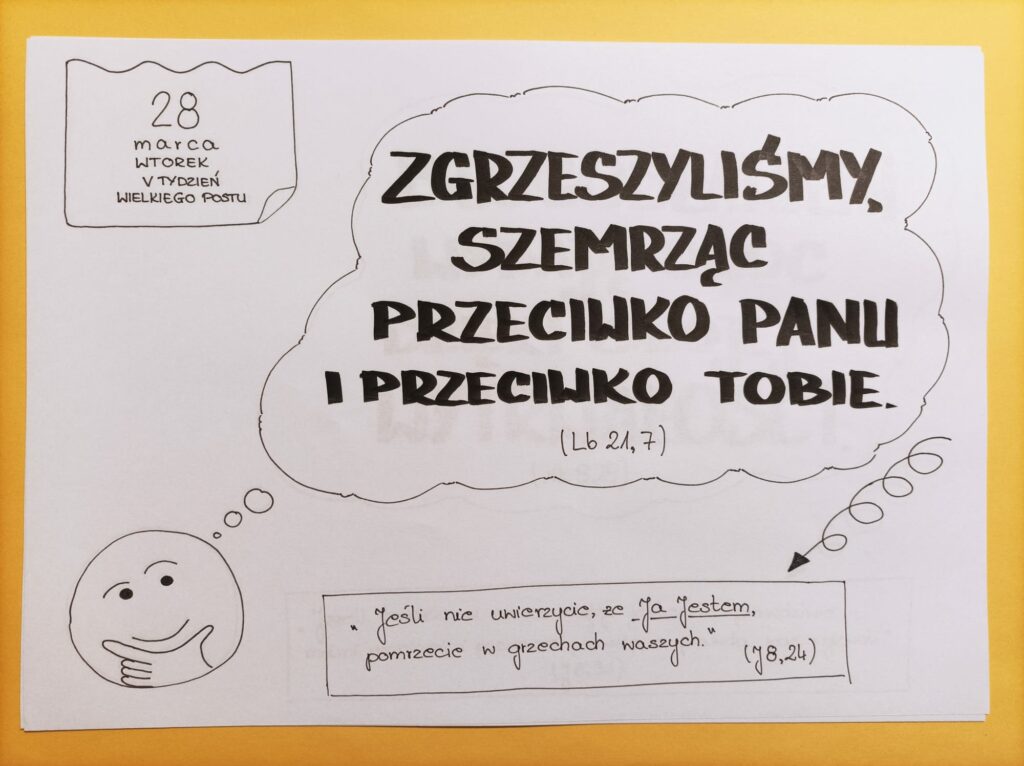 28
marca
WTOREK
V TYDZIEŃ
WIELKIEGO POSTU
ZGRZESZYLIŚMY,
SZEMRZĄC
PRZECIWKO PANU
I PRZECIWKO TOBIE.
(Lb 21,7)
"Jeśli nie uwierzycie, że Ja Jestem,
pomrzecie w grzechach waszych."
(J 8,24)